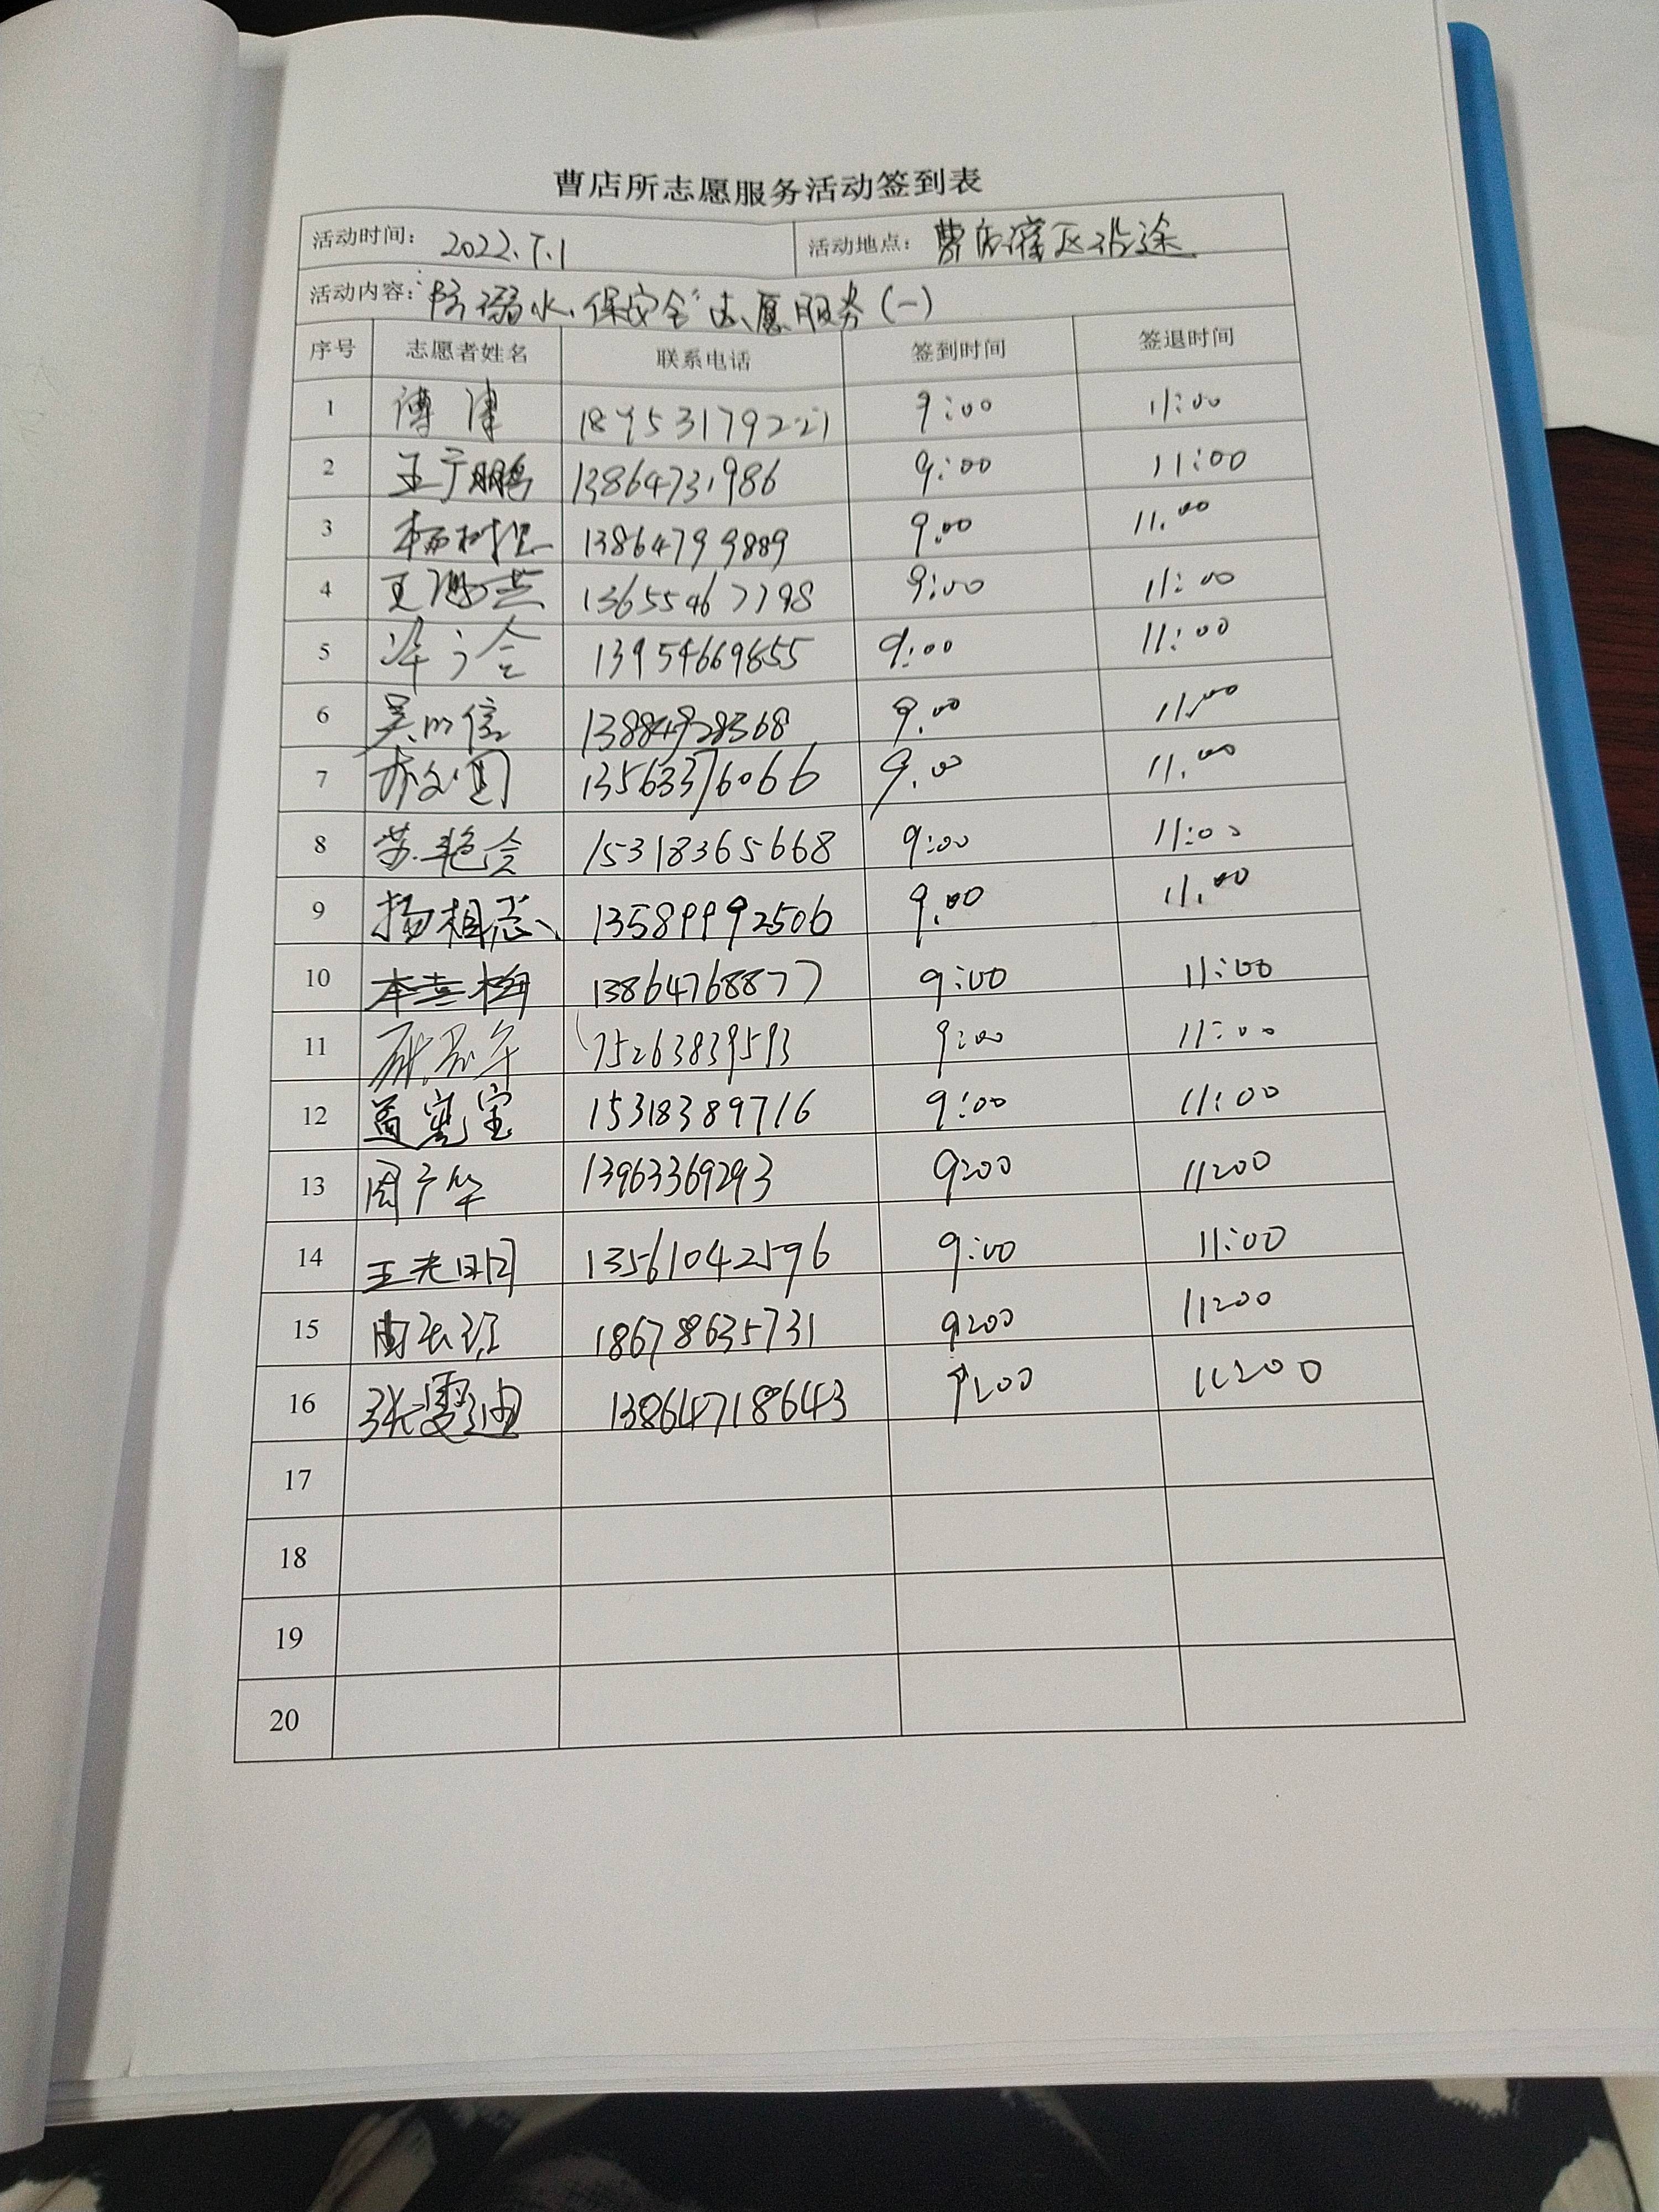 曹店所志愿服务活动签到表
活动时间： 2022.7.1 活动地点： 曹店灌区沿途
活动内容： "防溺水、保安全"志愿服务(一)
序号 志愿者姓名 联系电话 签到时间 签退时间
1 9:00 11:00
2 王宁鹏 13864731986 9:00 11:00
3 13864799889 9:00 11:00
4 13655467798 9:00 11:00
5 13954669655 9:00 11:00
6 吴明信 13884928368 9:00 11:00
7 13563376066 9:00 11:00
8 苏艳会 15318365668 9:00 11:00
9 杨相志 13589992506 9:00 11:00
10 13864768877 9:00 11:00
11 9:00 11:00
12 盖宪宝 15318389716 9:00 11:00
13 周广华 13963369293 9:00 11:00
14 王光明 13561042596 9:00 11:00
15 18678635731 9:00 11:00
16 张雪迪 13864718643 9:00 11:00
17
18
19
20